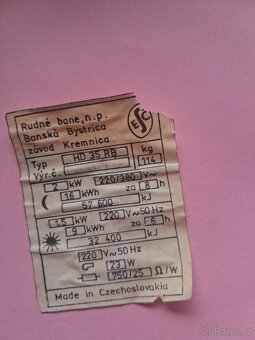 Rudné bane, n.p.
Banská Bystrica
závod Kremnica
ESC
Typ HD 35 RB kg
Výr.č. 114
2 kW 220/380 V~
16 kWh za 8 h
57 600 kJ
1,5 kW 220 V~50Hz
9 kWh za 6 h
32 400 kJ
220 V~50Hz
23 W
750/25 Ω/W
Made in Czechoslovakia